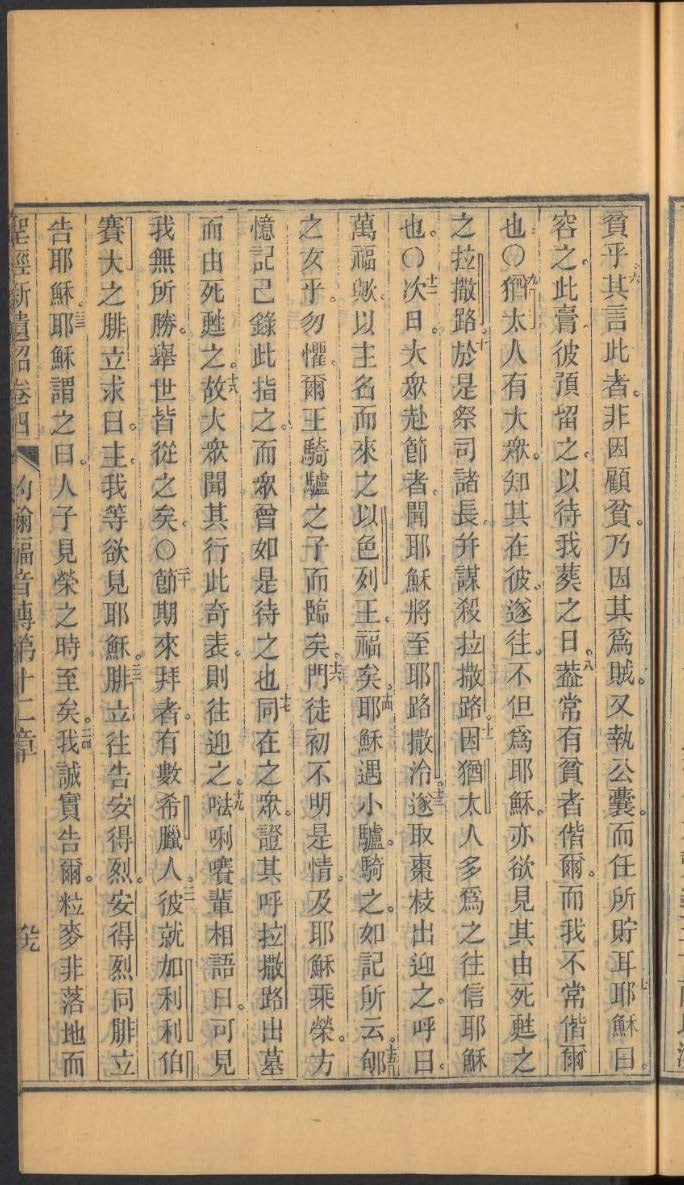 貧乎六其言此者。非因顧貧。乃因其爲賊。又執公囊。而任所貯耳七耶穌曰。
容之。此膏彼預留之。以待我葬之日。八蓋常有貧者偕爾。而我不常偕爾
也。〇九猶太人有大衆。知其在彼。遂往。不但爲耶穌。亦欲見其由死甦之
之拉撒路。十於是祭司諸長。幷謀殺拉撒路。十一因猶太人多爲之往信耶穌
也。〇十二次日。大衆赴節者。聞耶穌將至耶路撒冷。十三遂取棗枝出迎之。呼曰。
萬福歟。以主名而來之以色列王。福矣。十四耶穌遇小驢。騎之。如記所云。十五郇
之女乎。勿懼。爾王騎驢之子而臨矣。十六門徒初不明是情。及耶穌乘榮。方
憶記己錄此指之。而衆曾如是待之也十七同在之衆。證其呼拉撒路出墓
而由死甦之。十八故大衆聞其行此奇表。則往迎之。十九𠵽唎㘔輩相語曰。可見
我無所勝。舉世皆從之矣。〇二十節期來拜者。有數希臘人。二一彼就加利利伯
賽大之腓立求曰。主。我等欲見耶穌。二二腓立往告安得烈。安得烈同腓立
告耶穌。二三耶穌謂之曰。人子見榮之時至矣。二四我誠實告爾。粒麥非落地而
聖經新遺詔卷四 約翰福音傳第十二章